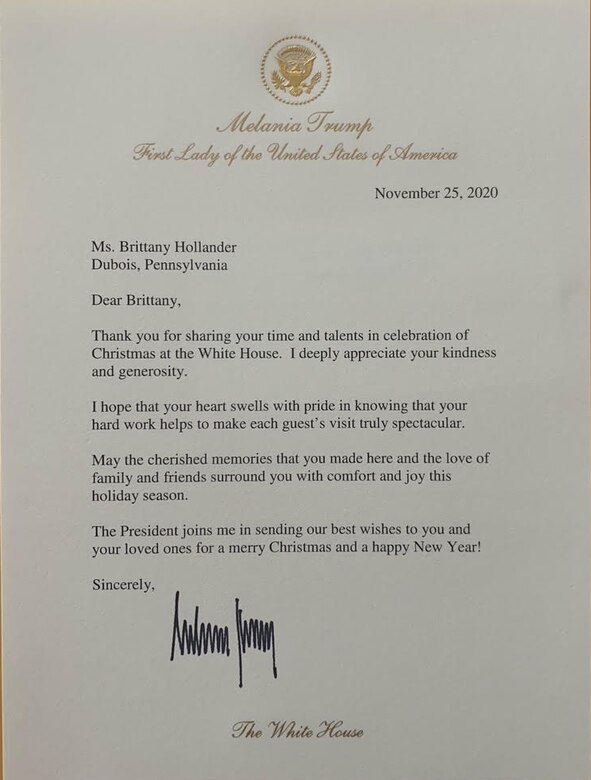 Melania Trump
First Lady of the United States of America
November 25, 2020
Ms. Brittany Hollander
Dubois, Pennsylvania
Dear Brittany,
Thank you for sharing your time and talents in celebration of
Christmas at the White House.  I deeply appreciate your kindness
and generosity.
I hope that your heart swells with pride in knowing that your
hard work helps to make each guest's visit truly spectacular.
May the cherished memories that you made here and the love of
family and friends surround you with comfort and joy this
holiday season.
The President joins me in sending our best wishes to you and
your loved ones for a merry Christmas and a happy New Year!
Sincerely,
The White House